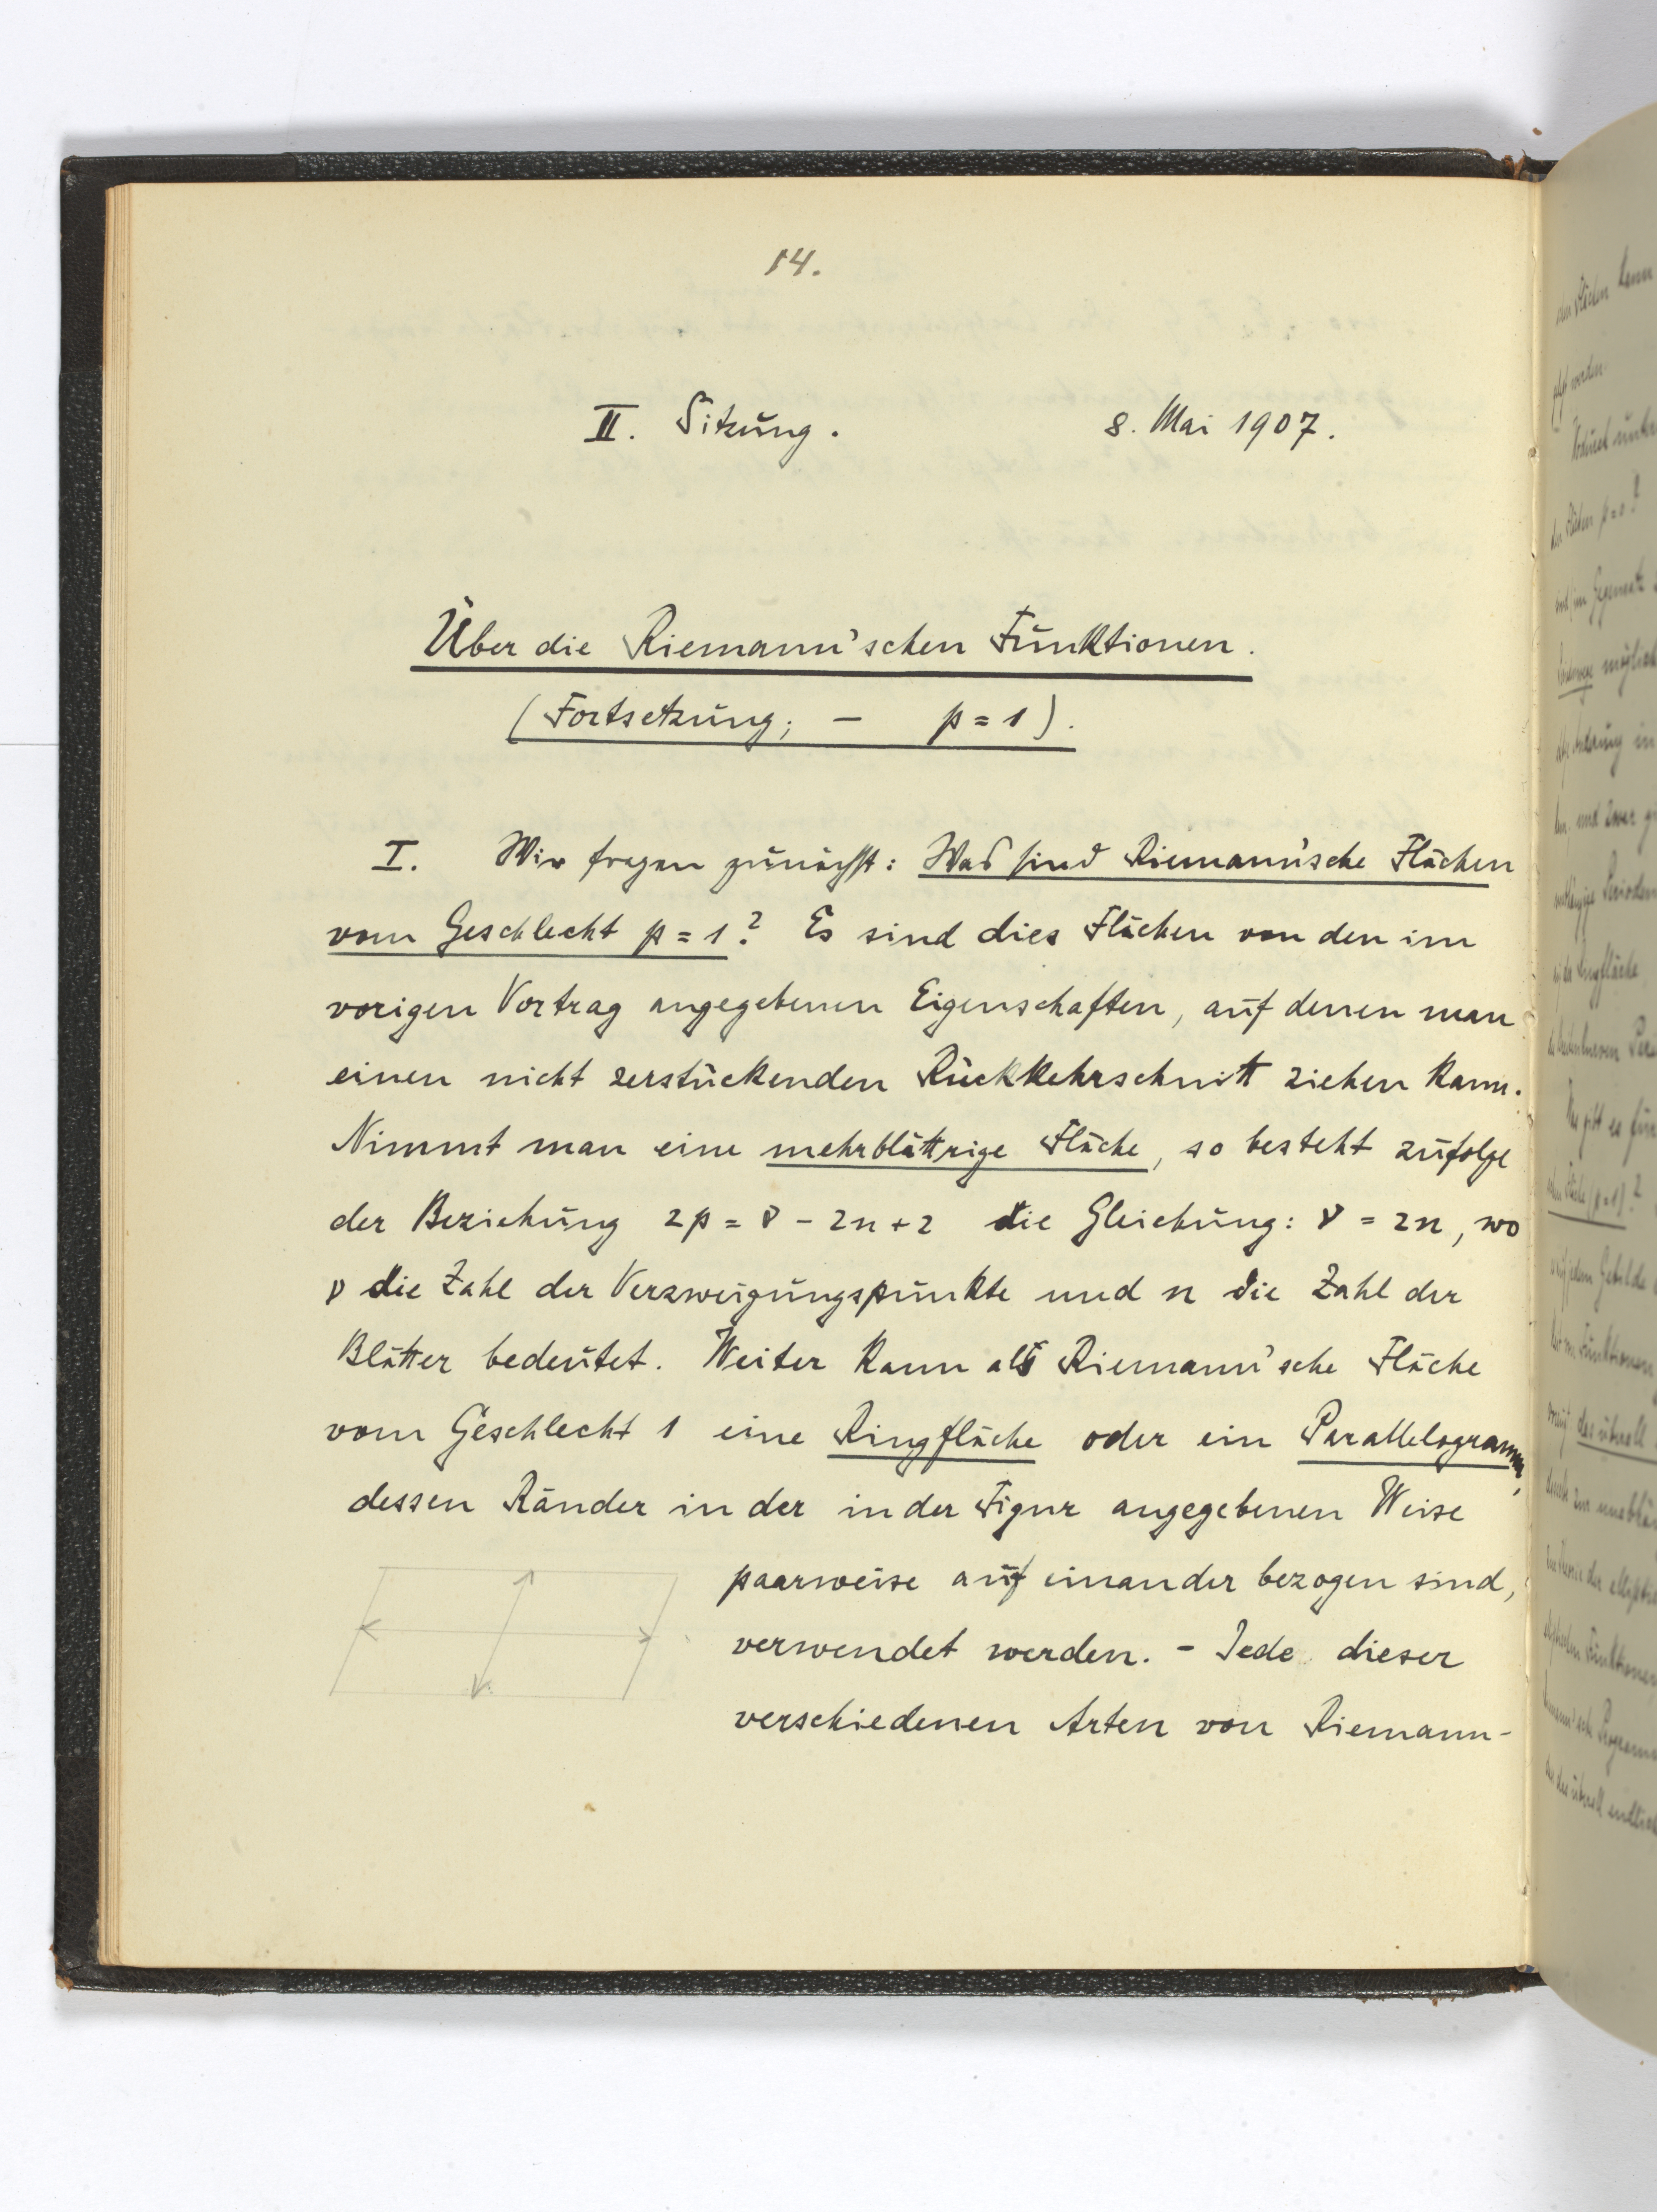 14.
II. Sitzung. 8. Mai 1907.
Über die Riemann'schen Funktionen.
(Fortsetzung; – p = 1).
I. Wir fragen zunächst: Was sind Riemann'sche Flächen
vom Geschlecht p = 1? Es sind dies Flächen von den im
vorigen Vortrag angegebenen Eigenschaften, auf denen man
einen nicht zerstückenden Rückkehrschnitt ziehen kann.
Nimmt man eine mehrblättrige Fläche, so besteht zufolge
der Beziehung 2p = ν - 2n + 2 die Gleichung: ν = 2n, wo
ν die Zahl der Verzweigungspunkte und n die Zahl der
Blätter bedeutet. Weiter kann als Riemann'sche Fläche
vom Geschlecht 1 eine Ringfläche oder ein Parallelogramm,
dessen Ränder in der in der Figur angegebenen Weise
paarweise auf einander bezogen sind,
verwendet werden. - Jede dieser
verschiedenen Arten von Riemann-